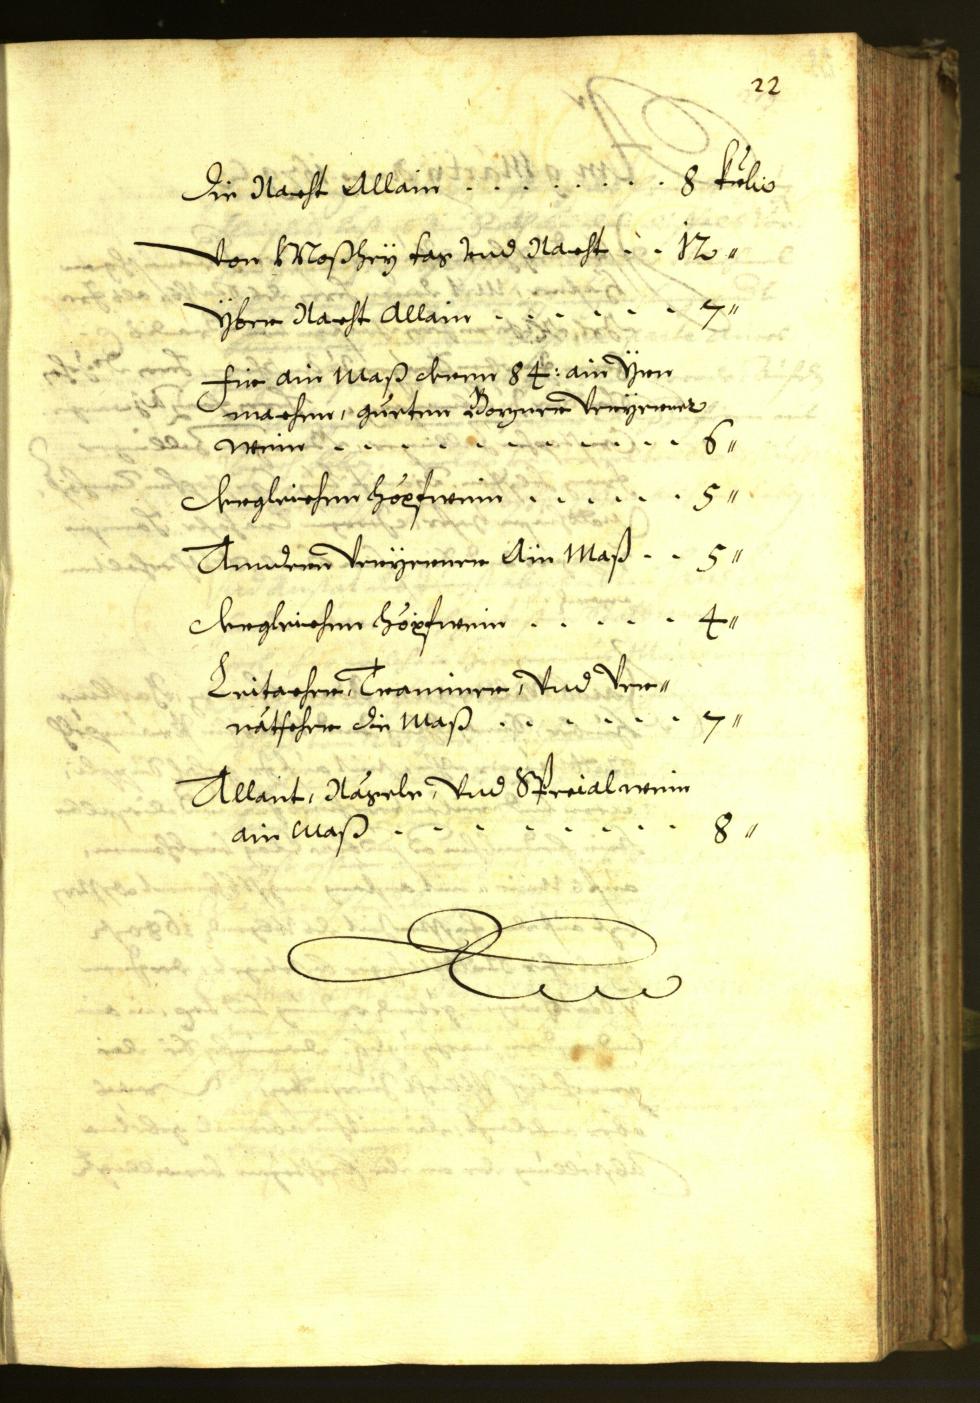 22
die Nacht Allain . . . . . . . . 8 kr
Von Roßhey tag Vnd Nacht . . . 12 "
Yber Nacht Allain . . . . . . . 7 "
Für ain Maß deren 84: ain Yrn
machen, gueten Bozner Vernner
Wein . . . . . . . . . . 6 "
dergleichen höpfwein . . . . . 5 "
Anndern Ain Maß . . 5 "
dergleichen höpfwein . . . . . 4 "
Leitacher, Traminer, Vnd Ver"
nätscher die Maß . . . . . . 7 "
Allant, Nägele, Vnd Specialwein
ain Maß . . . . . . . . 8 "